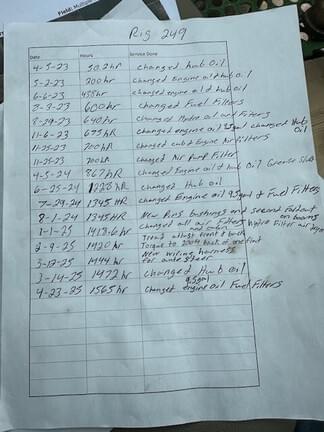 Field: Multiple
Rig 249
Date Hours Service Done
4-5-23 50.2hr Changed hub Oil
5-2-23 200hr Changed Engine oil & hub oil
6-6-23 458hr changed engine oil & hub oil
600hr Changed Fuel Filters
8-29-23 640hr Changed Hydro oil and Filters
11-6-23 675hr changed engine oil changed Hub Oil
11-25-23 700hr Changed cab & Engine air filters
11-25-23 700hr Changed Air Pump Filter
4-5-24 867hr Changed Engine oil & hub oil Grease
6-25-24 1223HR Changed Hub oil
7-29-24 1345HR Changed Engine oil & Fuel Filters
8-1-24 1345HR New Pins bushings and second on booms
1-1-25 1418.6hr Changed all air filters and cabin Hydro Filter air
2-9-25 1420hr front & back
Torque to 200ft back and front
3-12-25 1444hr New wiring harness
for auto steer
3-14-25 1472hr Changed Hub oil
4-23-25 1565hr Changed engine oil Fuel Filters